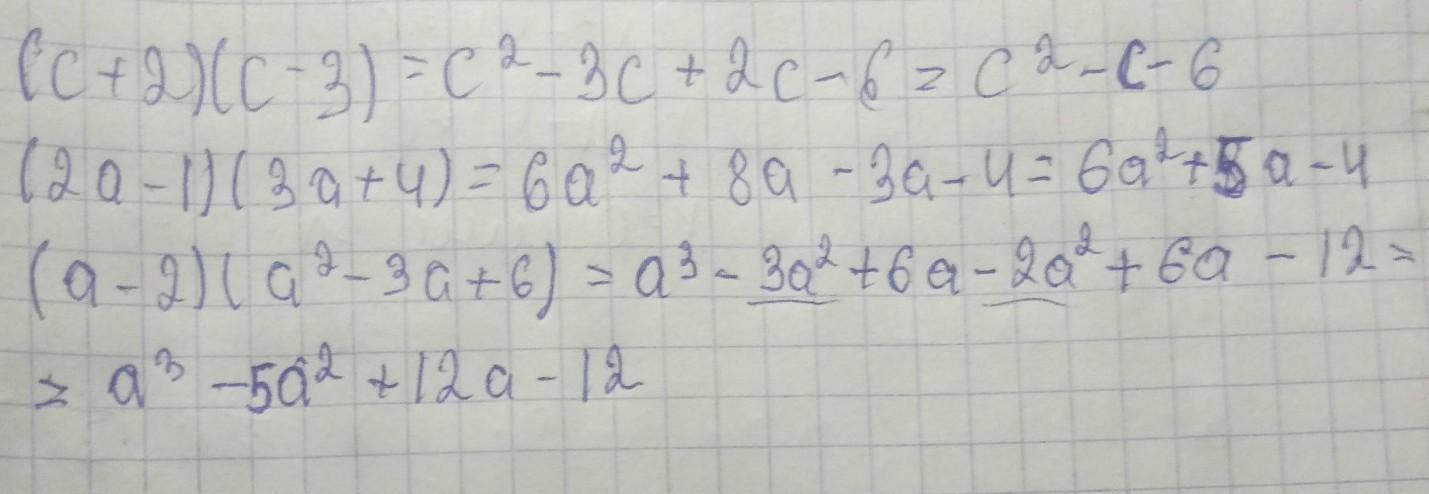 (c+2)(c-3)=c²-3c+2c-6=c²-c-6
(2a-1)(3a+4)=6a²+8a-3a-4=6a²+5a-4
(a-2)(a²-3a+6)=a³-3a²+6a-2a²+6a-12=
=a³-5a²+12a-12